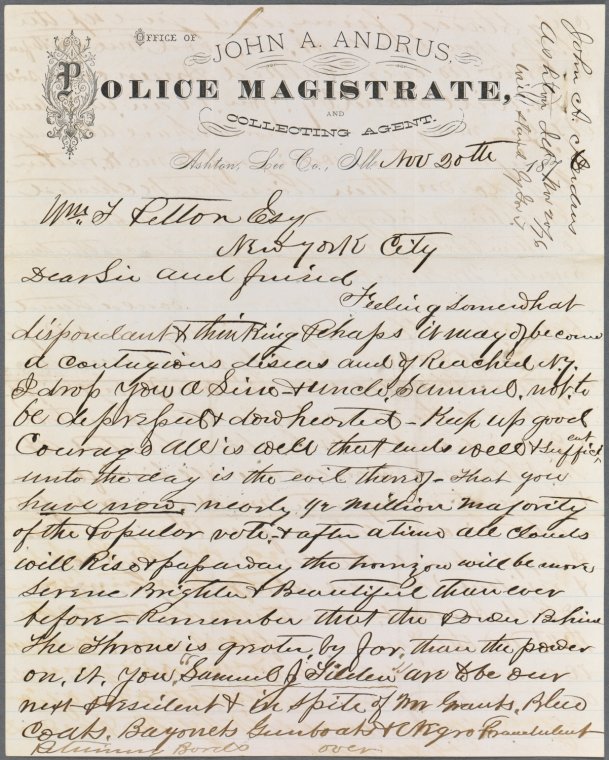 OFFICE OF
JOHN A. ANDRUS,
POLICE MAGISTRATE,
AND
COLLECTING AGENT.
Ashton, Lee Co., Ill. Nov 20th 187
John A. Andrus
Ashton Ills Nov 20/76
Wm. T Pelton Esq
New York City
Dear Sir and friend
Feeling Somewhat
dispondant & thinking Prhaps it may of become
a contagious diseas and of Reached N.Y.
I drop you a Line & uncle, Samuel, not, to
be depressed & dowhearted - Keep up good
Courage All is well that ends well & Sufficient
unto the day is the evil therof - that you
have now, nearly 1/2 million majority
of the Popular vote, & after a time all clouds
will Rise & pass away the horizon will be more
Serene Brighter & Beautiful than ever
before - Remember that the Power Behind
The Throne is grater, by far, than the power
on, it, you, "Samuel J Tilden" are to be our
next President & in Spite of Mr Grants, Blue
Coats, Bayonets Gunboats & Negro Fraudulent
Returning Bords over